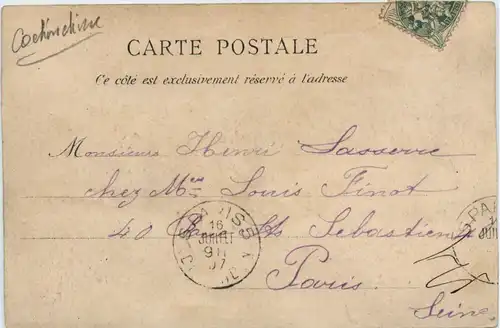 Cochinchine
CARTE POSTALE
Ce côté est exclusivement réservé à l'adresse
Monsieur Henri Lasserre
chez Mme Louis Finot
40 Rue St Sebastien
Paris
Seine
16
JUILLET